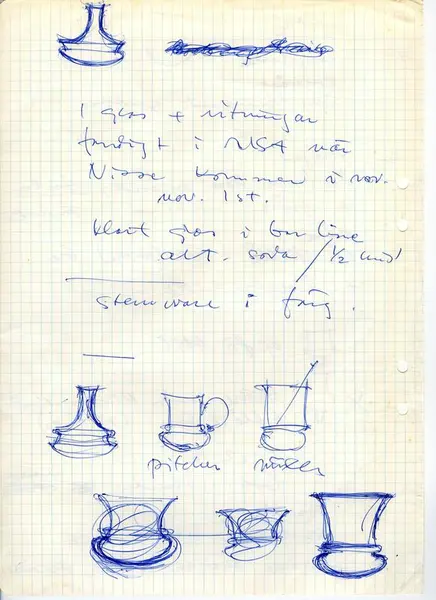 1 glas + ritningar
färdigt i USA när
Nisse kommer i nov.
nov. 1st.
klart glas i
alt. soda 1/2
stemware i färg.
pitcher mixer